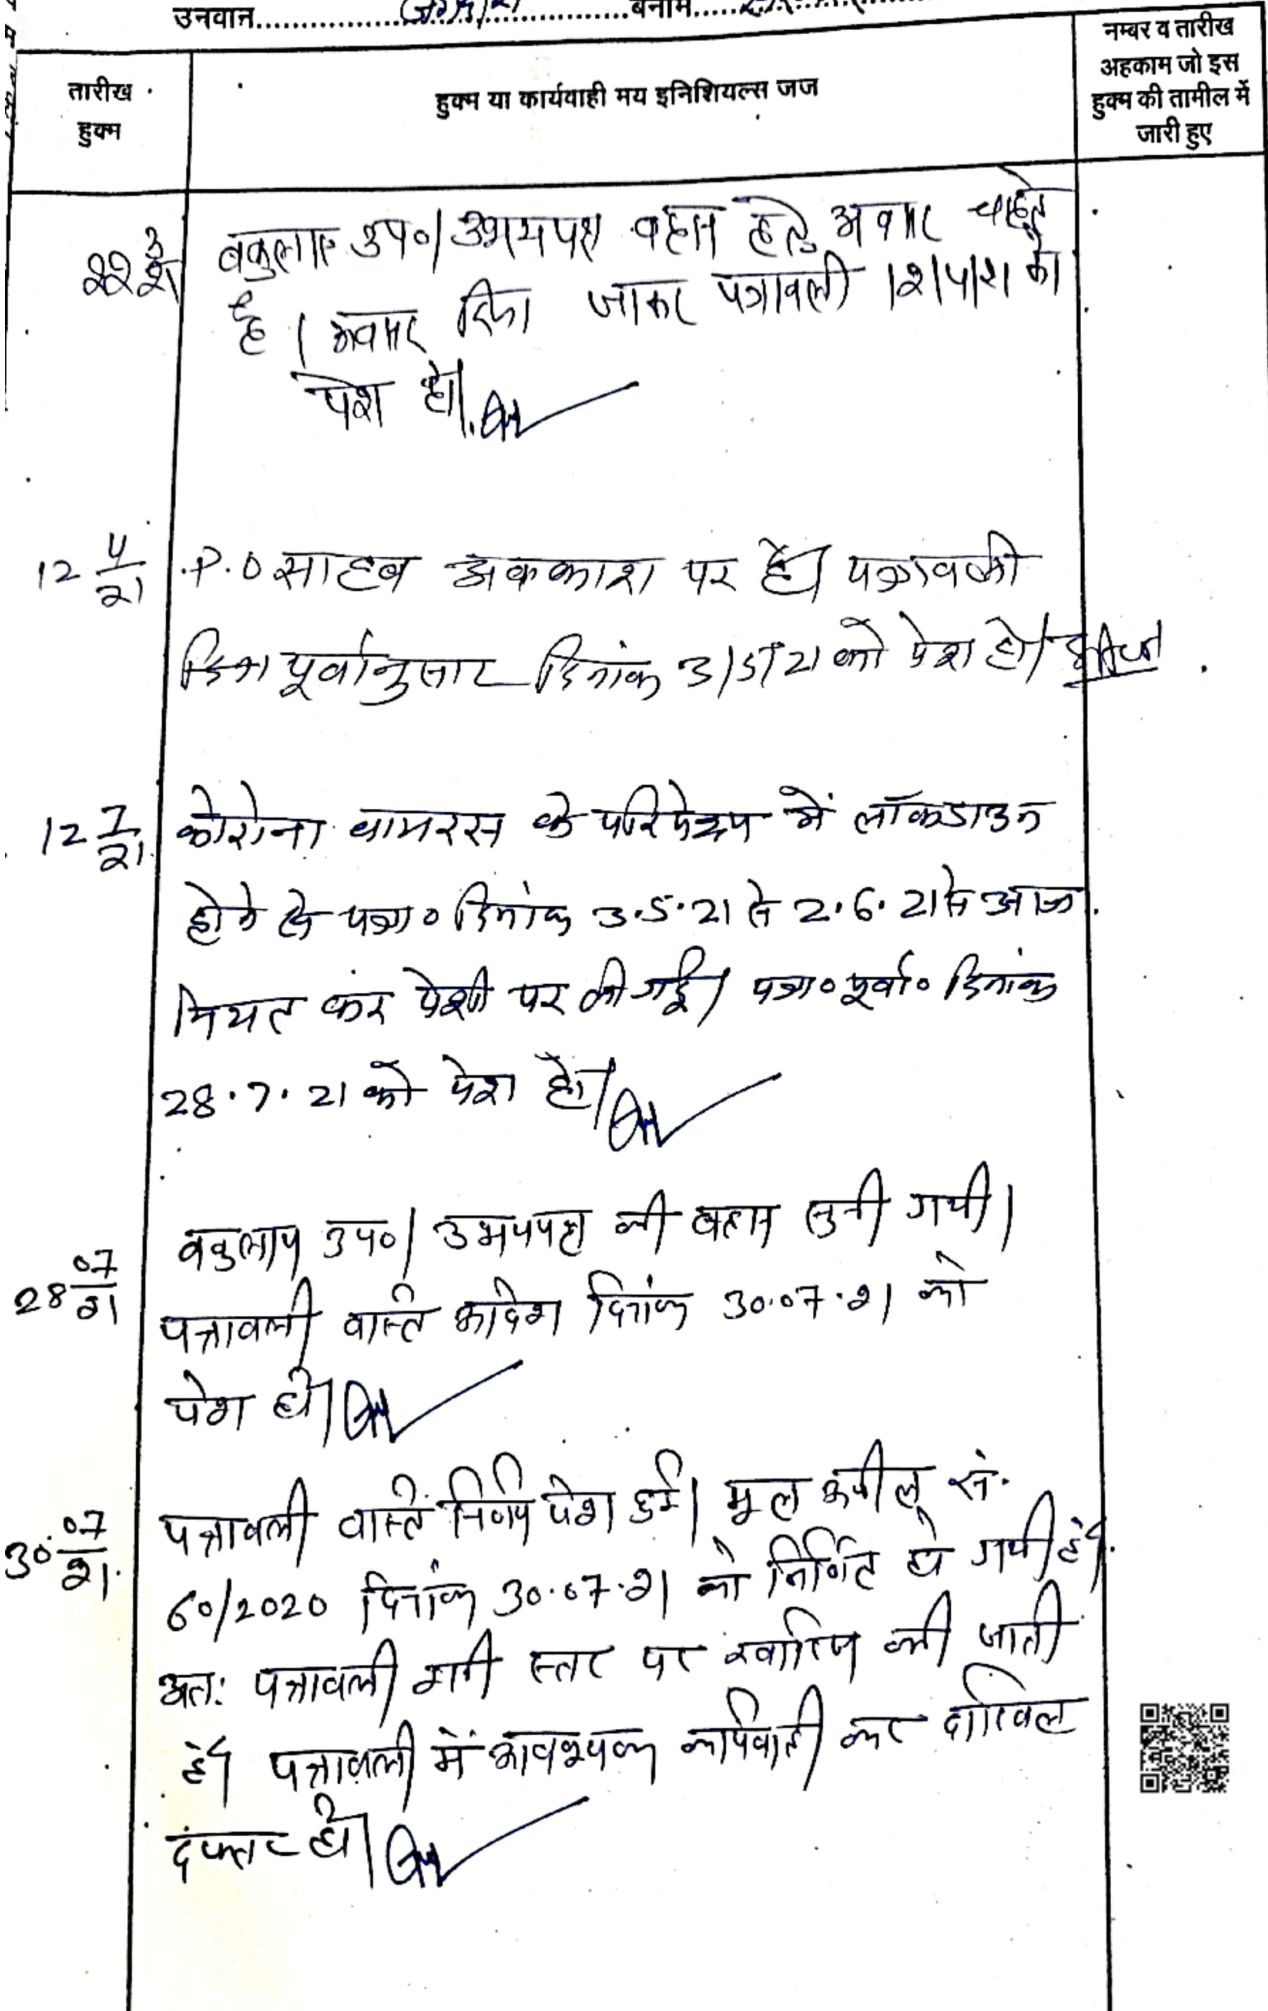 उनवान..............................बनाम..............
तारीख हुक्म
हुक्म या कार्यवाही मय इनिशियल्स जज
नम्बर व तारीख
अहकाम जो इस
हुक्म की तामील में
जारी हुए
22 3/21 वकुलाय उप०। उभयपक्ष बहस हेतु अवसर चाहते
है। अवसर दिया जाकर पत्रावली 12/4/21 को
पेश हो।
12 4/21 P.O साहब अवकाश पर है। पत्रावली
पूर्वानुसार दिनांक 3/5/21 को पेश हो।
12 7/21 कोरोना वायरस के परिपेक्ष्य में लॉकडाउन
होने से पत्रा० दिनांक 3.5.21 से 2.6.21 से आज
नियत कर पेशी पर ली गई। पत्रा० पूर्वा० दिनांक
28.7.21 को पेश हो।
28 07/21 वकुलाय उप०। उभयपक्ष की बहस सुनी गयी।
पत्रावली वास्ते आदेश दिनांक 30.07.21 को
पेश हो।
30 07/21 पत्रावली वास्ते निर्णय पेश हुई। मूल अपील सं.
60/2020 दिनांक 30.07.21 को निर्णित हो गयी है।
अतः पत्रावली इसी स्तर पर खारिज की जाती
है। पत्रावली में आवश्यक कार्यवाही कर दाखिल
दफ्तर हो।